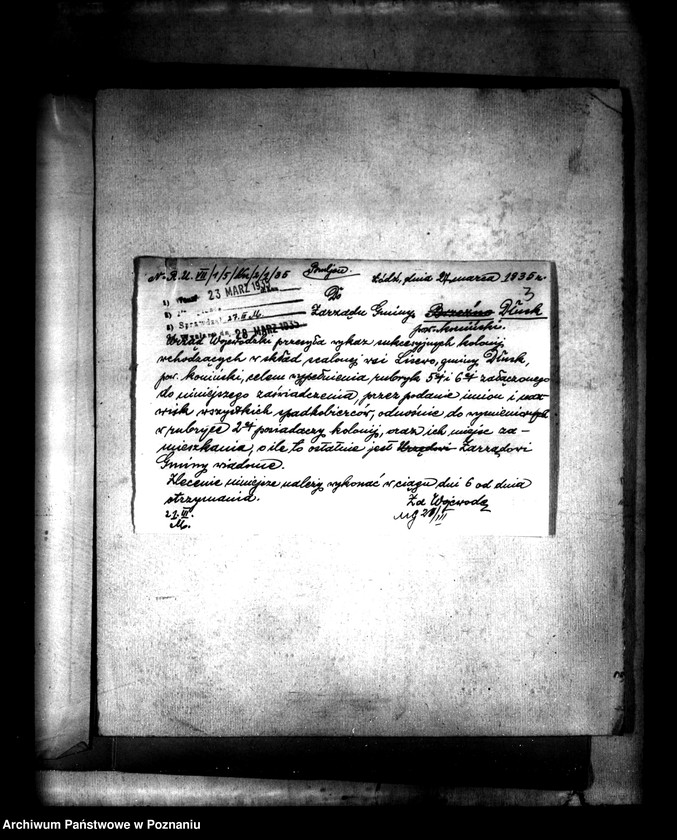 N. R. U. VII/1/5/Kn/2/2/36 Łódź, dnia 27. marca 1935 r.
1) 23 MARZ 1935
2)
3) Sprawdzał 27.III. M.
4) 28 MARZ 1935
3
Do
Zarządu Gminy Dłusk
pow. koniński.
Urząd Wojewódzki przesyła wykaz sukcesyjnych kolonij
wchodzących w skład scalonej wsi Lisewo, gminy Dłusk,
pow. koniński, celem wypełnienia rubryk 5ej i 6ej załączonego
do niniejszego zaświadczenia, przez podanie imion i naz-
wisk wszystkich spadkobierców, odnośnie do wymienionych
w rubryce 2ej posiadaczy kolonij, oraz ich miejsc za-
mieszkania, o ile to ostatnie jest Urzędowi Zarządowi
Gminy wiadome.
Zlecenie niniejsze należy wykonać w ciągu dni 6 od dnia
otrzymania. Za Wojewodę
27.III. 28/III
M.
Archiwum Państwowe w Poznaniu